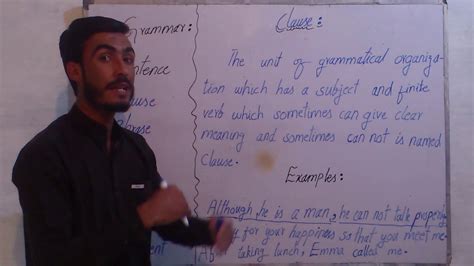 Grammar:
entence
ause
hrase
ent
Clause:
The unit of grammatical organiza-
tion which has a subject and finite
verb which sometimes can give clear
meaning and sometimes can not is named
Clause.
Examples:
Although, he is a man, he can not talk properly
for your happiness so that you meet me.
After taking lunch, Emma called me.